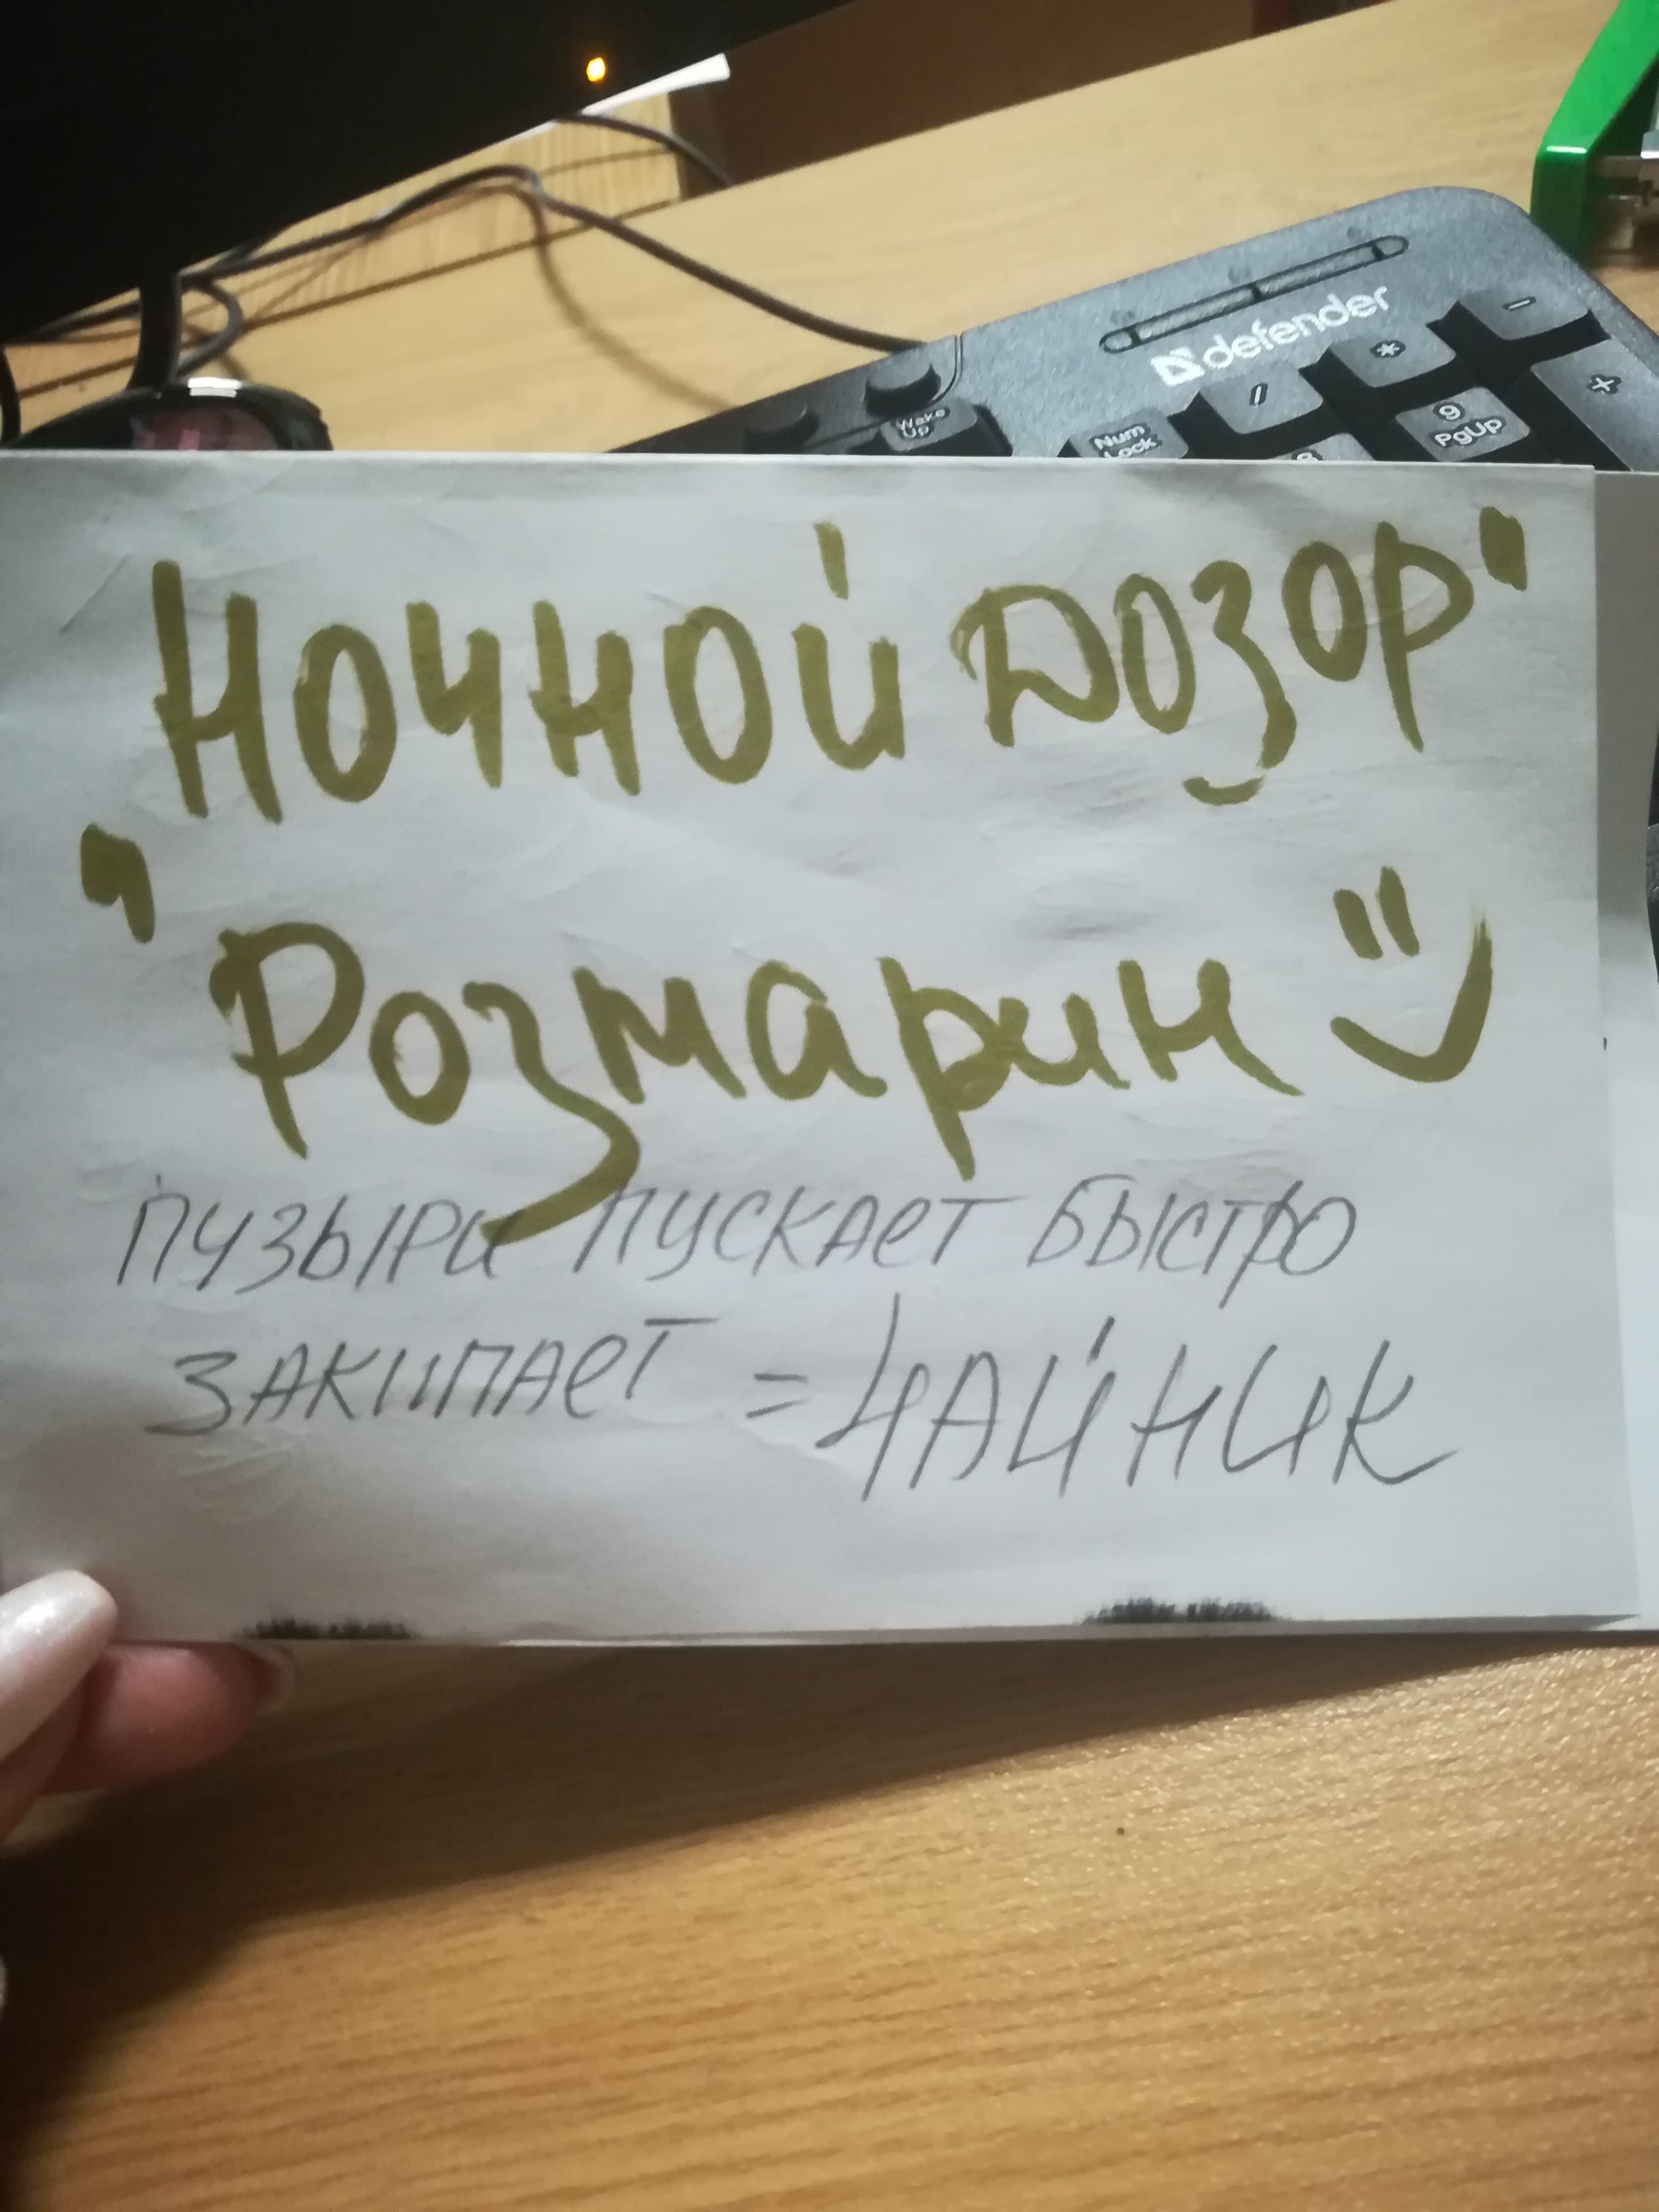 defender
-
*
/
+
9
PgUp
8
Num
Lock
Wake
Up
Ночной Дозор"
"Розмарин"
ПУЗЫРИ ПУСКАЕТ БЫСТРО
ЗАКИПАЕТ = ЧАЙНИК